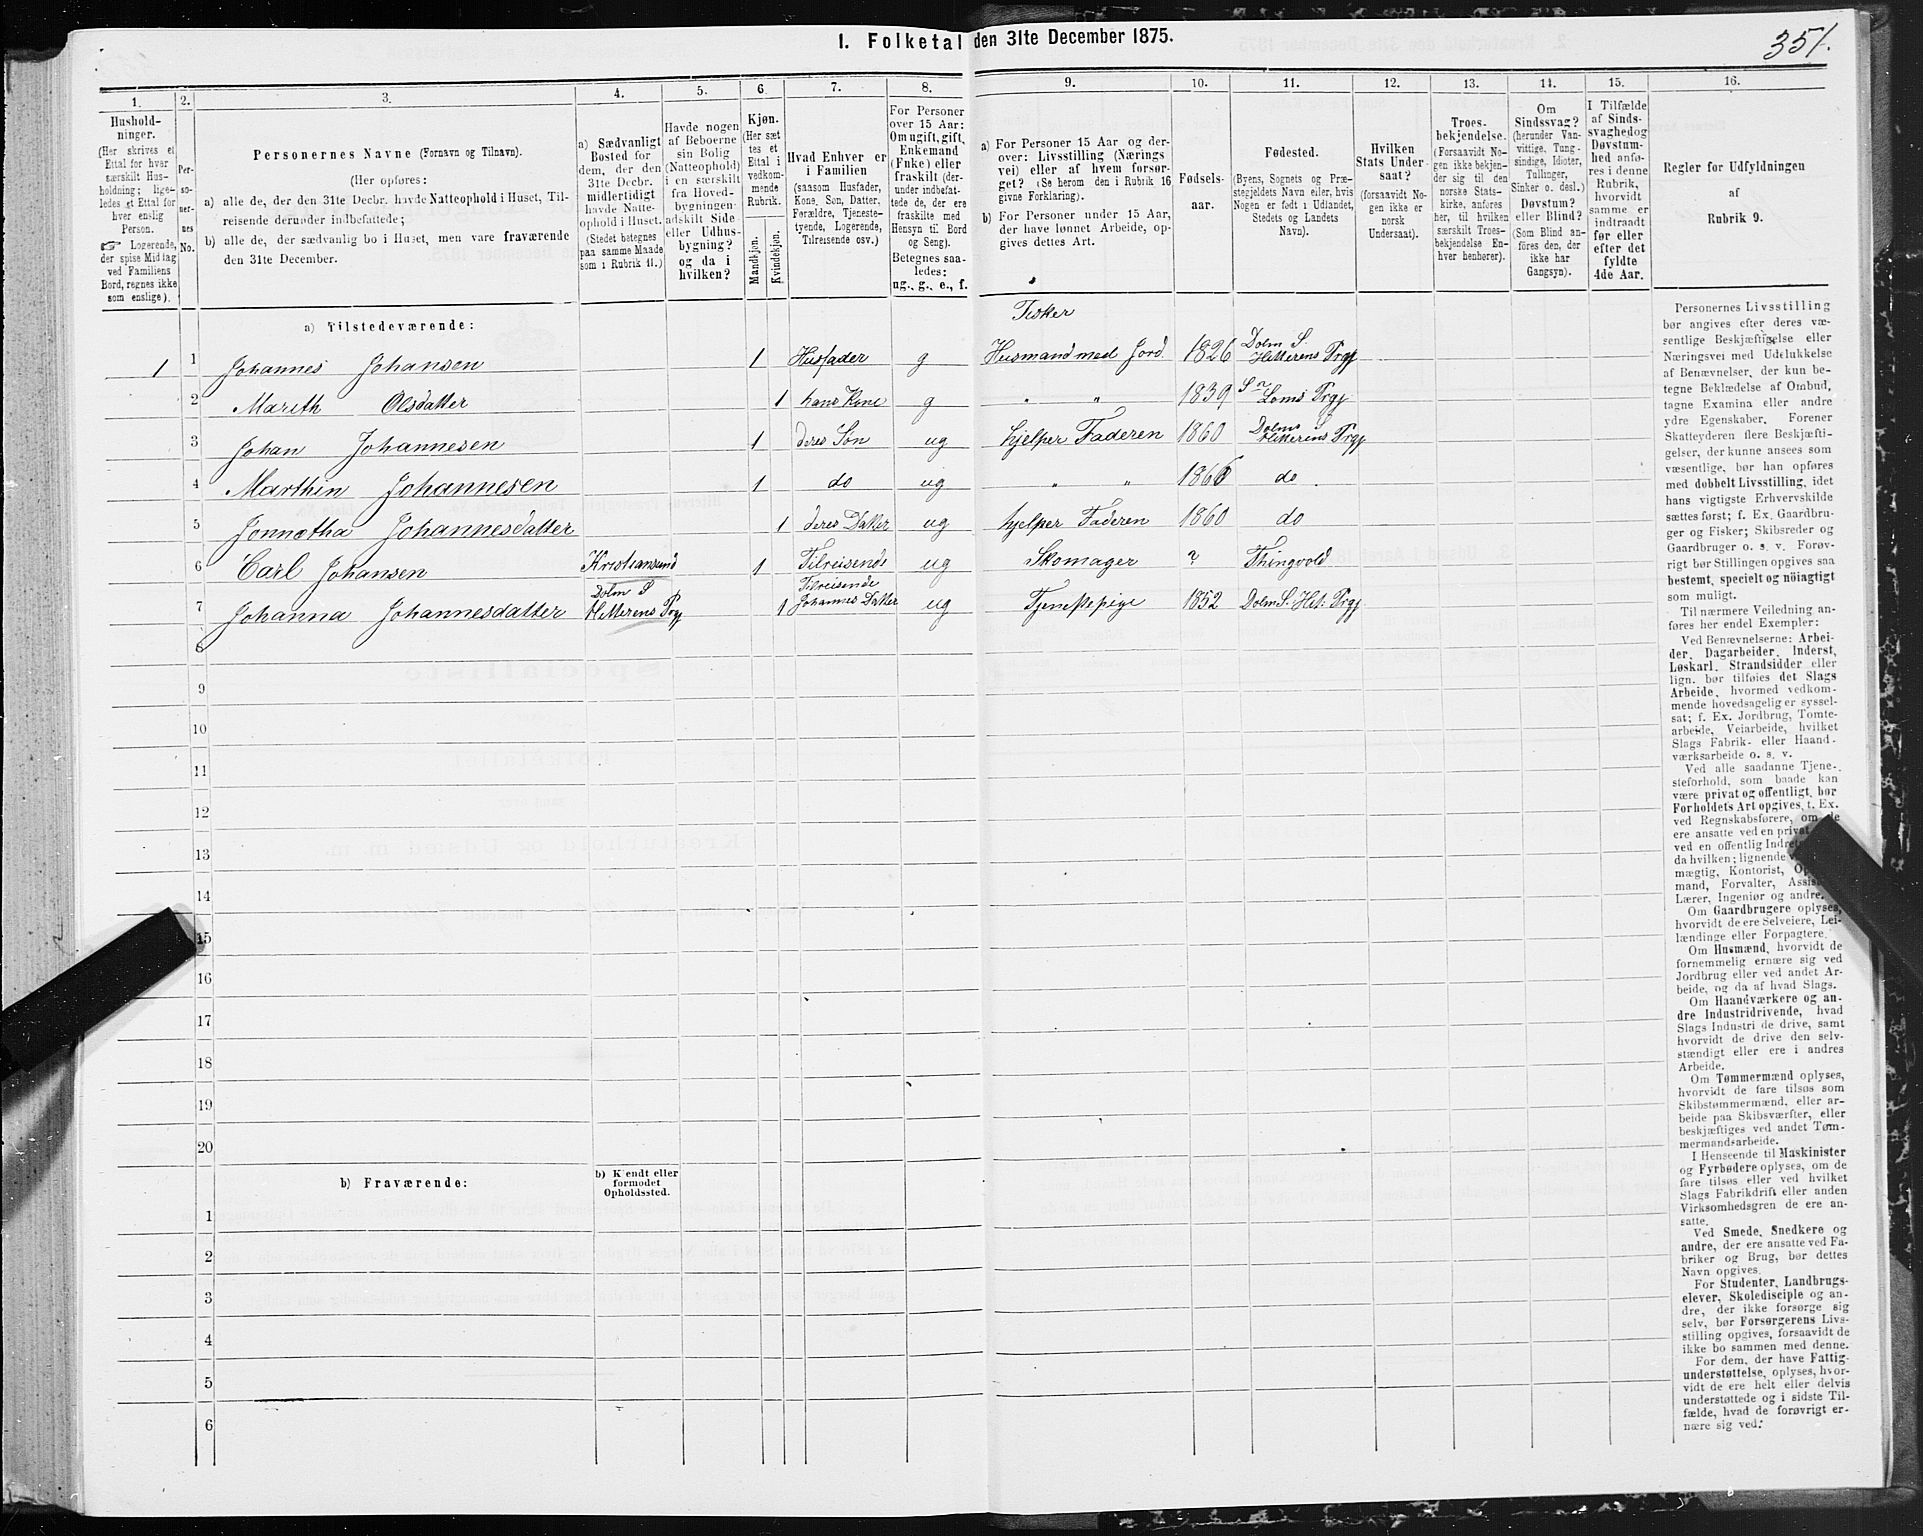 1. Folketal den 31te December 1875.
351.
1. 2. 3. 4. 5. 6. 7. 8. 9. 10. 11. 12. 13. 14. 15. 16.
Hushold-
ninger.
(Her skrives et
Ettal for hver
særskilt Hus-
holdning; lige-
ledes et Ettal for
hver enslig
Person.
☞ Logerende,
der spise Middag
ved Familiens
Bord, regnes ikke
som enslige).
Per-
so-
ner-
nes
No.
Personernes Navne (Fornavn og Tilnavn).
(Her opføres:
a) alle de, der den 31te Decbr. havde Natteophold i Huset, Til-
reisende derunder indbefattede;
b) alle de, der sædvanlig bo i Huset, men vare fraværende
den 31te December.
a) Sædvanligt
Bosted for
dem, der den
31te Decbr.
midlertidigt
havde Natte-
ophold i Huset.
(Stedet betegnes
paa samme Maade
som i Rubrik 11.)
Havde nogen
af Beboerne
sin Bolig
(Natteophold)
i en særskilt
fra Hoved-
bygningen
adskilt Side-
eller Udhus-
bygning?
og da i
hvilken?
Kjøn.
(Her sæt-
tes et
Ettal i
vedkom-
mende
Rubrik.
Mandkjøn.
Kvindekjøn.
Hvad Enhver er
i Familien
(saasom Husfader,
Kone, Søn, Datter,
Forældre, Tjeneste-
tyende, Logerende,
Tilreisende osv.)
For Personer
over 15 Aar:
Om ugift, gift,
Enkemand
(Enke) eller
fraskilt (der-
under indbefat-
tede, der ere
fraskilte med
Hensyn til Bord
og Seng).
Betegnes saa-
ledes:
ug., g., e., f.
a) For Personer 15 Aar og der-
over: Livsstilling (Nærings
vei) eller af hvem forsør-
get? (Se herom den i Rubrik 16
givne Forklaring).
b) For Personer under 15 Aar,
der have lønnet Arbeide, op-
gives dettes Art.
Fødsels-
aar.
Fødested.
(Byens, Sognets og Præ-
stegjeldets Navn eller, hvis
Nogen er født i Udlandet,
Stedets og Landets
Navn).
Hvilken
Stats Under-
saat?
(forsaavidt No-
gen ikke er
norsk
Undersaat).
Troes-
bekjendelse.
(Forsaavidt No-
gen ikke bekjen-
der sig til den
norske Stats-
kirke, anføres
her, til hvilken
særskilt Troes-
bekjendelse En-
hver henhører).
Om
Sindssvag?
(herunder Van-
vittige, Tung-
sindige, Idioter,
Tullinger,
Sinker o. desl.)
Døvstum?
eller Blind?
(Som Blind an-
føres den, der
ikke har
Gangsyn).
I Tilfælde
af Sinds-
svaghed og
Døvstum-
hed anfø-
res i denne
Rubrik,
hvorvidt
samme er
indtraadt
før eller
efter det
fyldte
4de Aar.
Regler for Udfyldningen
af
Rubrik 9.
a) Tilstedeværende:
Fisker
1 1 Johannes Johansen 1 Husfader g Husmand med Jord. 1826 Dolm S. Hitterens Prgj
2 Mareth Olsdatter 1 hans Kone g " " 1839 S n Loms Prgj
3 Johan Johannesen 1 deres Søn ug hjelper Faderen 1860 Dolms Hitterens Prgj
4 Marthin Johannesen 1 do ug " " 1866 do
5 Johannesdatter 1 deres Datter ug hjelper Faderen 1860 do
6 Carl Johansen Kristiansund 1 Tilreisende ug Skomager ? Thingvold
7 Johanna Johannesdatter Dolm S Hitterens Prgj 1 Tilreisende Johannes Datter ug Tjenestepige 1852 Dolm S. Hit: Prgj
8
9
10
11
12
13
14
15
16
17
18
19
20
b) Fraværende:
b) Kjendt eller
formodet
Opholdssted.
1
2
3
4
5
6
Personernes Livsstilling
bør angives efter deres væ-
sentlige Beskjæftigelse eller
Næringsvei med Udelukkelse
af Benævnelser, der kun be-
tegne Beklædelse af Ombud,
tagne Examina eller andre
ydre Egenskaber. Forener
Skatteyderen flere Beskjæfti-
gelser, der kunne ansees som
væsentlige, bør han opføres
med dobbelt Livsstilling, idet
hans vigtigste Erhvervskilde
sættes først; f. Ex. Gaardbru-
ger og Fisker; Skibsreder og
Gaardbruger o. s. v. Forøv-
rigt bør Stillingen opgives saa
bestemt, specielt og nöiagtigt
som muligt.
Til nærmere Veiledning an-
føres her endel Exempler:
Ved Benævnelserne: Arbei-
der, Dagarbeider, Inderst,
Løskarl, Strandsidder eller
lign. bør tilføies det Slags
Arbeide, hvormed vedkom-
mende hovedsagelig er syssel-
sat; f. Ex. Jordbrug, Tomte-
arbeide, Veiarbeide, hvilket
Slags Fabrik- eller Haand-
værksarbeide o. s. v.
Ved alle saadanne Tjene-
steforhold, som baade kan
være privat og offentligt, bør
Forholdets Art opgives, t. Ex.
ved Regnskabsførere, om de
ere ansatte ved en privat
ved en offentlig
da hvilken; lignende
mægtig, Kontorist,
mand, Forvalter,
Lærer, Ingeniør og andre.
Om Gaardbrugere oplyses,
hvorvidt de ere Selveiere, Lei-
lændinge eller Forpagtere.
Om Husmænd, hvorvidt de
fornemmelig ernære sig ved
Jordbrug eller ved andet Ar-
beide, og da af hvad Slags.
Om Haandværkere og an-
dre Industridrivende, hvad
Slags Industri de drive, samt
hvorvidt de drive den selv-
stændigt eller ere i andres
Arbeide.
Om Tømmermænd oplyses,
hvorvidt de fare tilsøs som
Skibstømmermænd, eller ar-
beide paa Skibsværfter, eller
beskjæftiges ved andet Tøm-
mermandsarbeide.
I Henseende til Maskinister
og Fyrbødere oplyses, om de
fare tilsøs eller ved hvilket
Slags Fabrikdrift eller anden
Virksomhedsgren de ere an-
satte.
Ved Smede, Snedkere og
andre, der ere ansatte ved Fa-
briker og Brug, bør dettes
Navn opgives.
For Studenter, Landbrugs-
elever, Skoledisciple og an-
dre, der ikke forsørge sig
selv, bør Forsørgerens Livs-
stilling opgives, forsaavidt de
ikke bo sammen med denne.
For dem, der have Fattig-
understøttelse, oplyses, hvor-
vidt de ere helt eller delvis
understøttede og i sidste Til-
fælde, hvad de forøvrigt er-
nære sig ved.